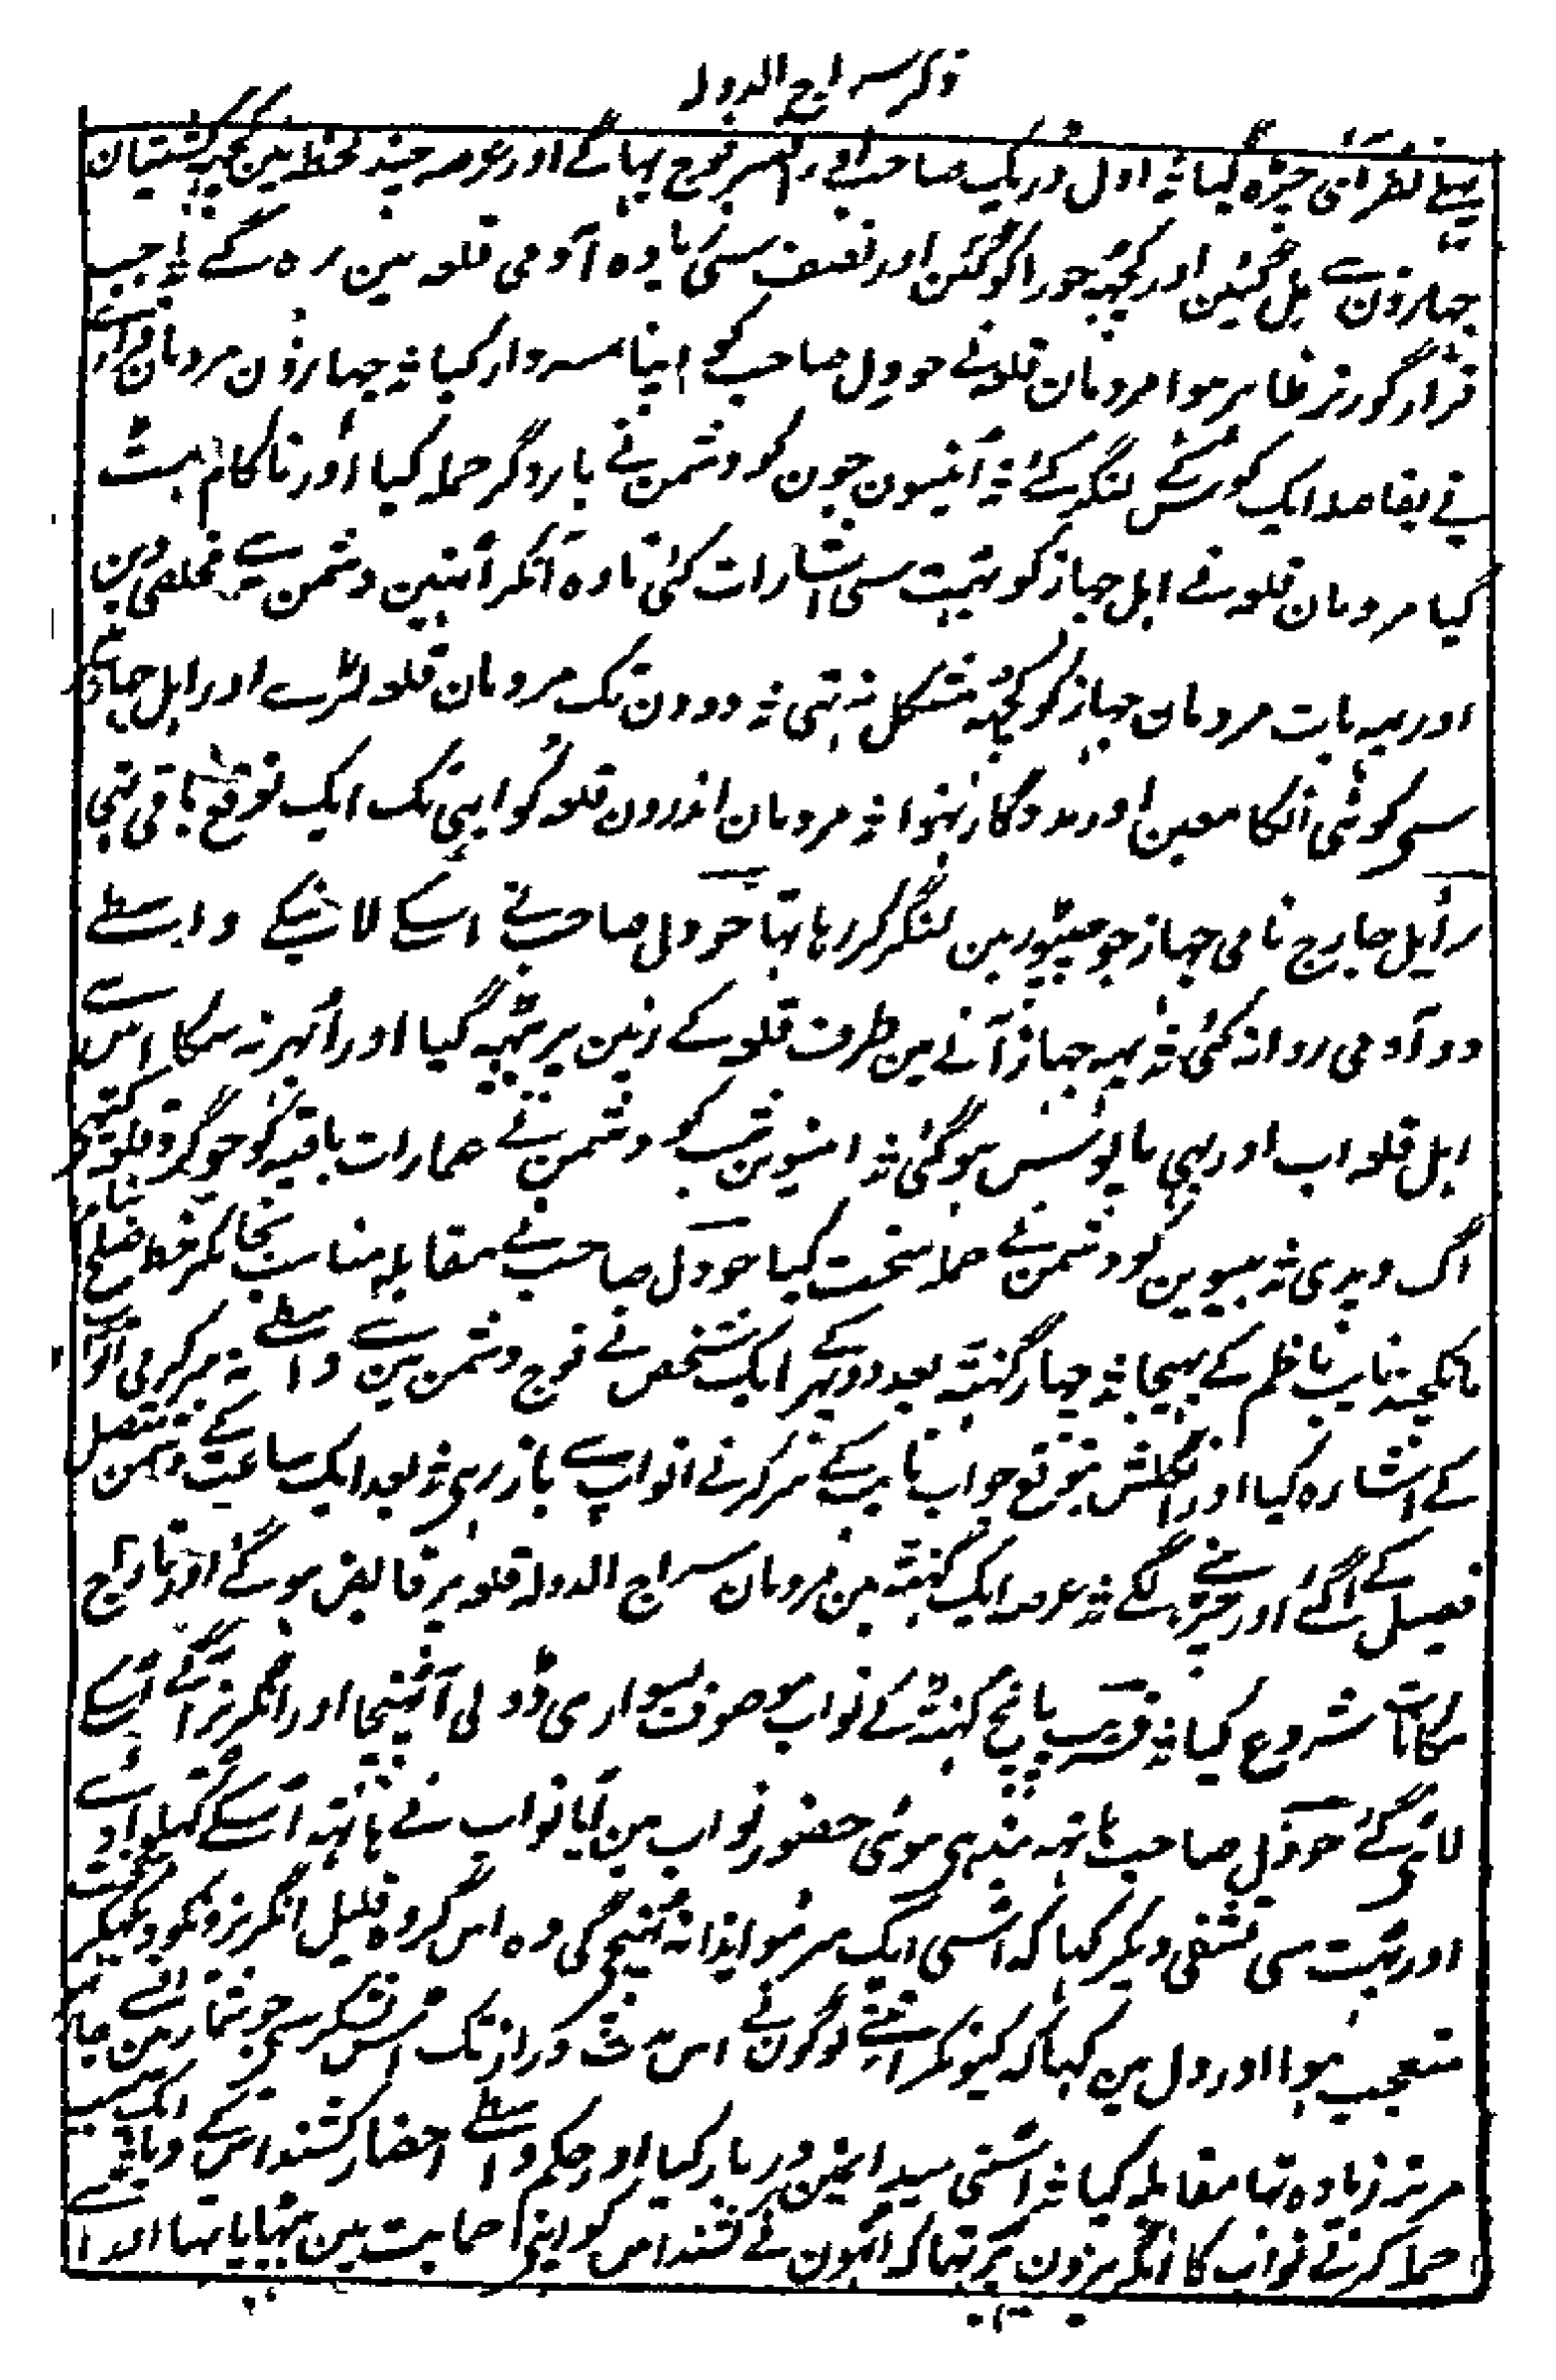 ذکر سراج الدولہ
پہلے نظر آئی چڑہ گیا ۔ اول ڈریک صاحب اور افسر فوج بہاگے اور عرصہ چند لحظہ مین کچہہ کشتیان
جہازون سے مل گئین اور کچہہ جورا کو گئن اور نصف سی زیادہ آدمی قلعہ مین رہ گے ۔ جب
فرار گورنر ظاہر ہوا مردمان قلعہ نے حودل صاحب کو اپنا سردار کیا ۔ جہازون مردمان فراری
نے بفاصلہ ایک کوس کے لنگر کئے ۔ آنیسون جون کو دشمن نے بار دگر حملہ کیا اور ناکام ہٹ
گیا مردمان قلعہ نے اہل جہاز کو بہت سی اشارات کئی تا وہ آنکر انہین دشمن سے مخلصی دین
اور یہہ بات مردمان جہاز کو کچہہ مشکل نہ تہی ۔ دو دن تک مردمان قلعہ لڑے اور اہل جہاز
سی کوئی انکا معین اور مددگار نہوا ۔ مردمان اندرون قلعہ کو ابہی تک ایک توقع باقی تہی
رائیل جارج نامی جہاز جو چیتپور مین لنگر کر رہا تہا حودل صاحب نے اسکے لانیکے واسطے
دو آدمی روانہ کئی ۔ یہہ جہاز آنے مین طرف قلعہ کے زمین پر بیٹہہ گیا اور ابہر نہ سکا اس سے
اہل قلعہ اب اور بہی مایوس ہوگئی ۔ انیسوین شب کو دشمن نے عمارات باقیہ کو جو گرد قلعہ کے تہین
اگ دیدی ۔ بیسوین کو دشمن نے حملہ سخت کیا حودل صاحب نے مقابلہ مناسب نجانکر خط صلح بنام
مانکچند نایب ناظم کے بہیجا ۔ چہار گہنٹہ بعد دوپہر کے ایک شخص نے فوج دشمن مین سے واسطے نہ سر کرنی اتواپ
کے اشارہ کیا اور انگلش بتوقع جواب نایب کے سر کرنے اتواپ سے باز رہی ۔ بعد ایک ساعت کے دشمن متصل
فصیل کے آگئے اور چڑہنے لگے ۔ عرصہ ایک گہنٹہ مین مردمان سراج الدولہ قلعہ پر قابض ہوگئے اور تاراج
کرنا شروع کیا ۔ قریب پانچ گہنٹہ کے نواب موصوف بسواری ڈولی آپہنچا اور انگریز آگے اسکے
لائی گئے حودل صاحب ہاتہہ بندہی ہوئی حضور نواب مین آیا نواب نے ہاتہہ اسکے کہلوا دئے
اور بہت سی تشفی دیکر کہا کہ اسی ایک سر مو ایذا نہ پہنچیگی وہ اس گروہ قلیل انگریزونکو دیکہکر سخت
متعجب ہوا اور دل مین کہا کہ کیونکر اتنے لوگون نے اس مدت دراز تک اس لشکر سی جو شمار مین انسے چار سو
مرتبہ زیادہ تہا مقابلہ کیا ۔ اسنی میدانمین دربار کیا اور حکم واسطے احضار کشنداس کے دیا ۔ ایک سبب
حملہ کرنے نواب کا انگریزون پر یہہ تہا کہ انہون نے کشنداس کو اپنی حمایت مین بٹہایا تہا اور